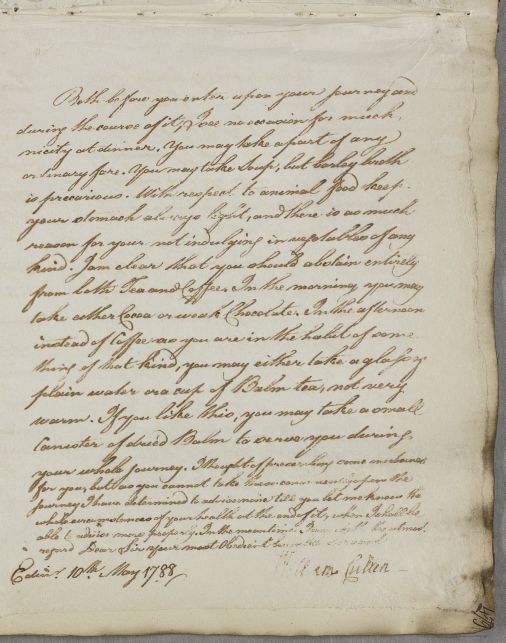 Both before you enter upon your Journey and
during the course of it, I see no occasion for much
nicety at dinner, You may take a part of any
ordinary fare. You may take Soup, but barley broth
is precarious. With respect to animal food keep
your stomach always light, and there is as much
reason for your not indulging in vegetables of any
kind. I am clear that you should abstain entirely
from both Tea and Coffee, In the morning you may
take either Cocoa or weak Chocolate, In the afternoon
instead of Coffee as you are in the habit of some
thing of that kind, you may either take a glass of
plain water or a cup of Balm tea, not very
warm. If you like this, you may take a small
Canister of dried Balm to serve you during
your whole Journey. I thought of prescribing some medicines
for you, but as you cannot take them conveniently upon the
Journey I have determined to advise none till you let me know the
whole circumstances of your health at the end of it, when I shall be
able to advise more properly. In the meantime I am with the utmost
regard Dear Sir Your most Obedient humble Servant
William Cullen
Edinr. 10th. May 1788